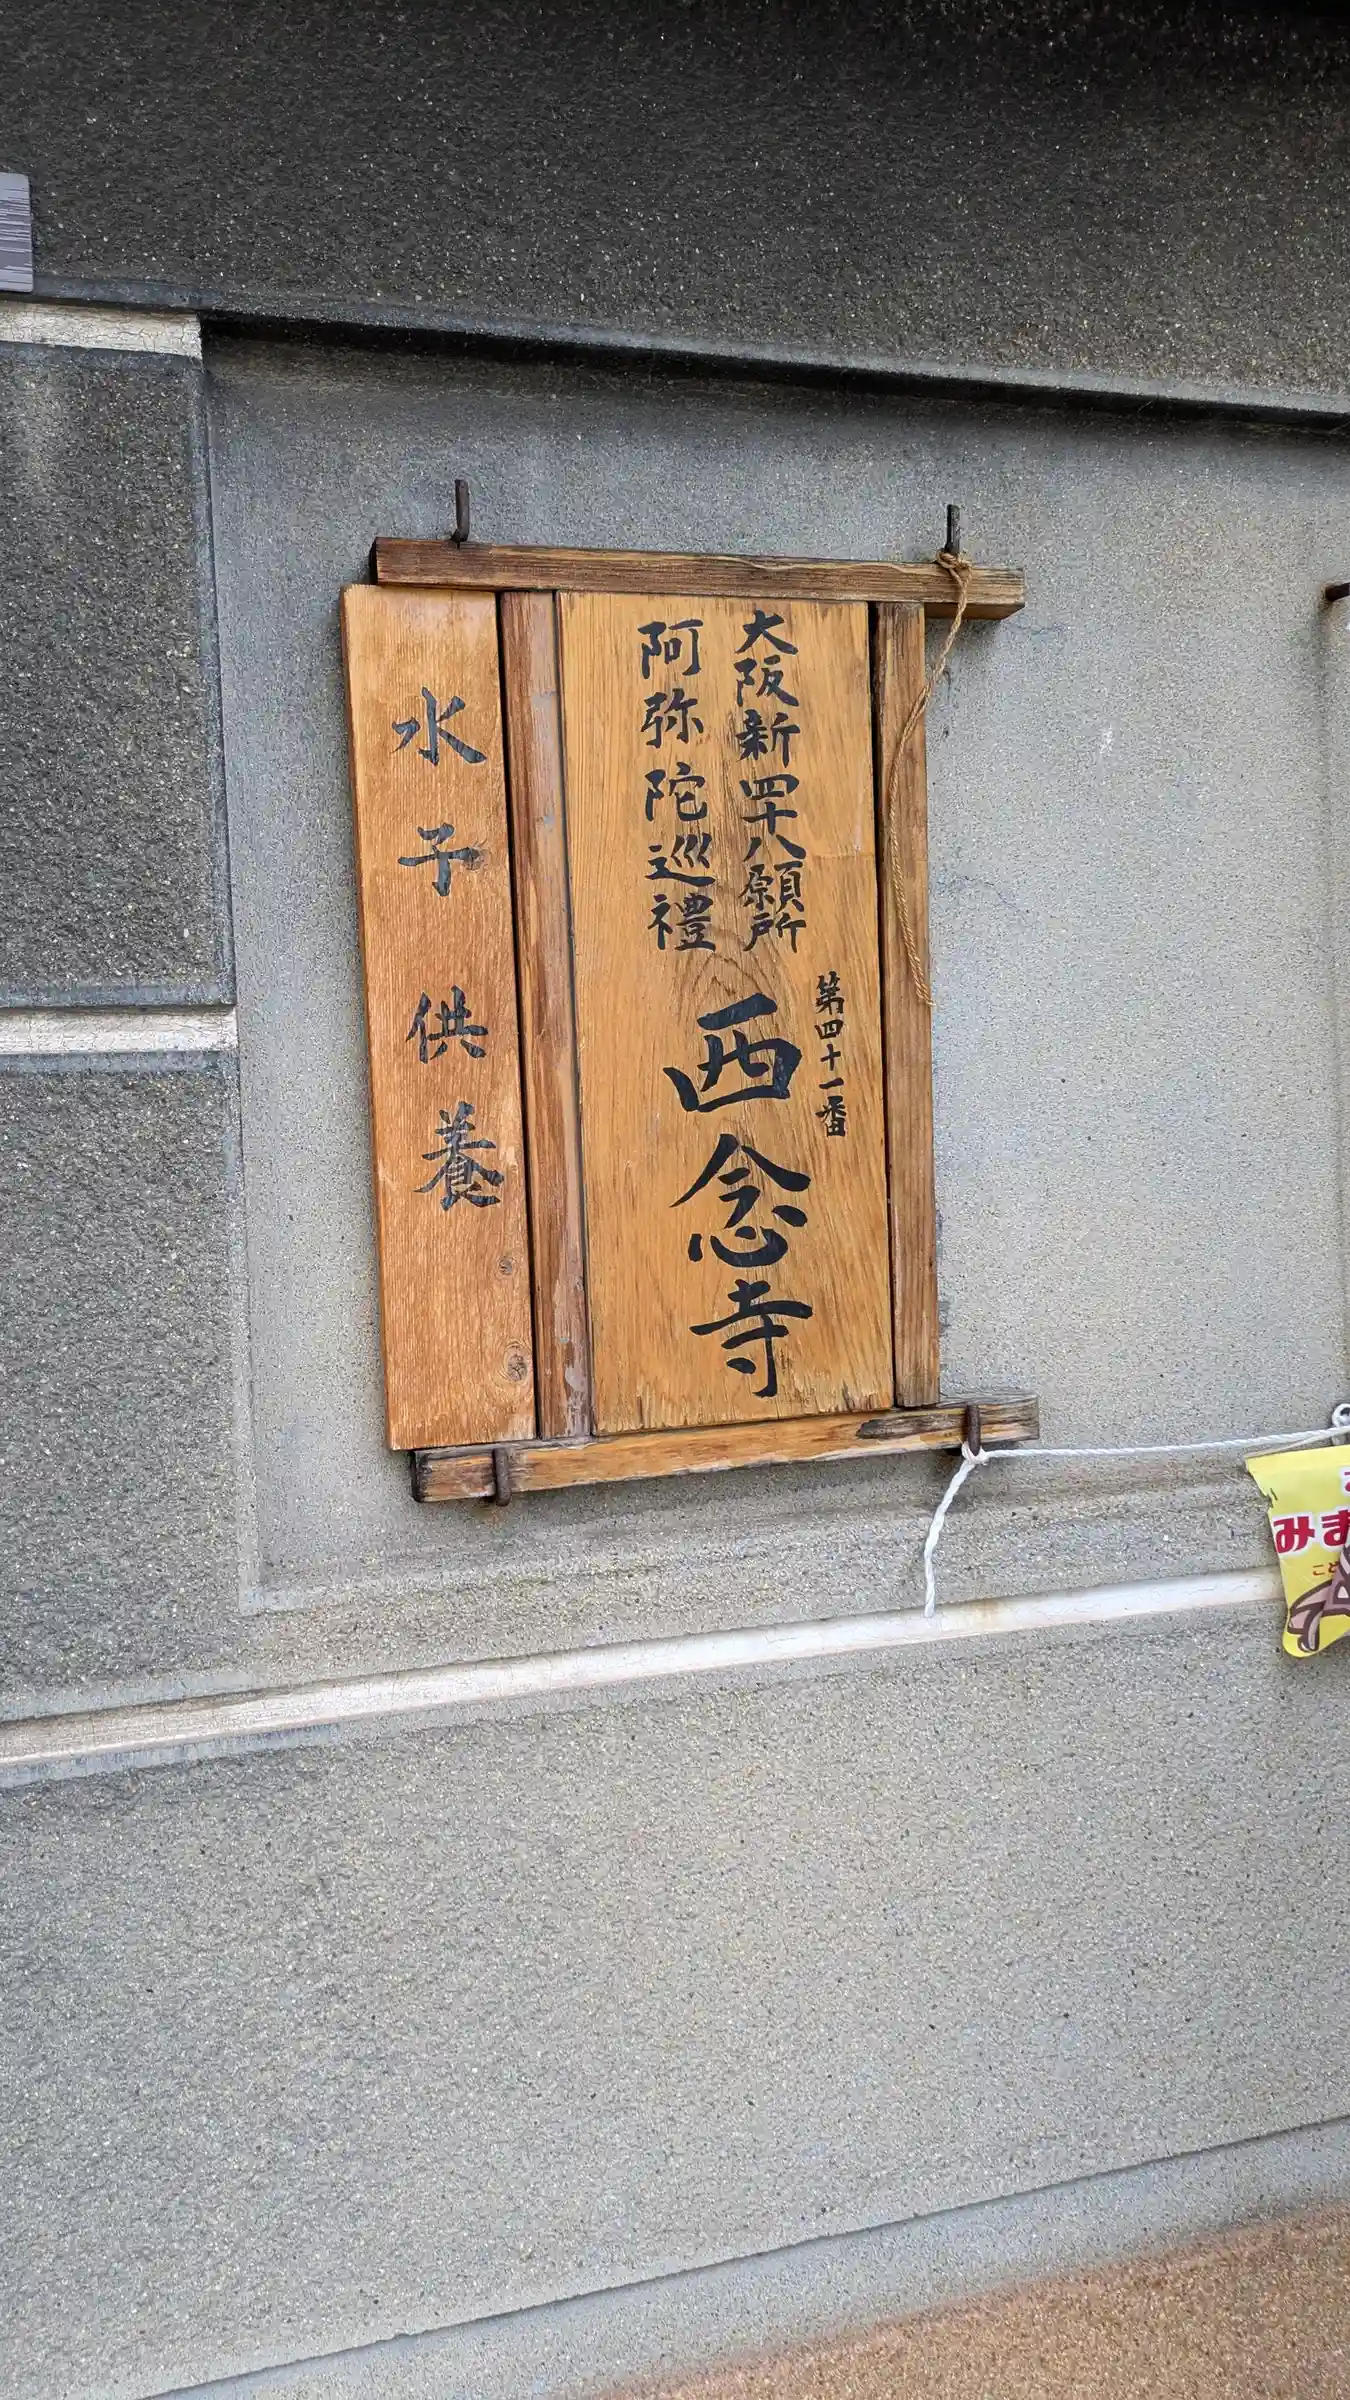 大阪新四十八願所
阿弥陀巡禮
第四十一番
西念寺
水子供養
みま
こど